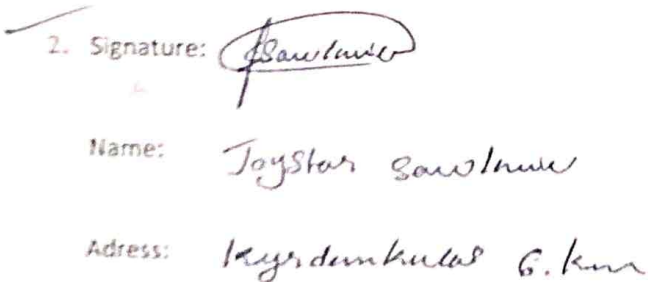 2. Signature: Sawlmie
Name: JoyStar Sawlmie
Adress: Kyrdemkulai